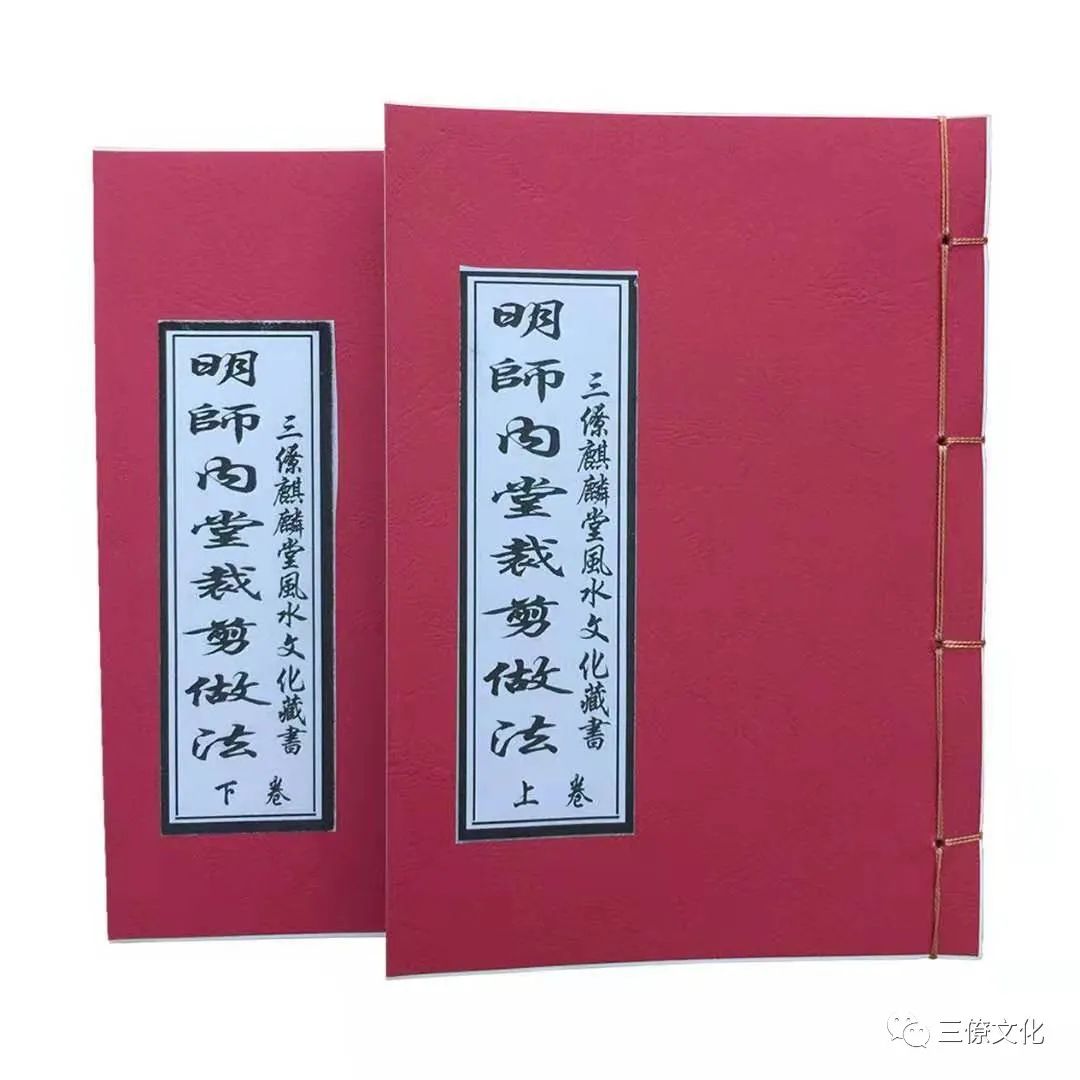 三僚麒麟堂風水文化藏書
明師内堂裁剪做法
卷上
三僚麒麟堂風水文化藏書
明師内堂裁剪做法
卷下
三僚文化